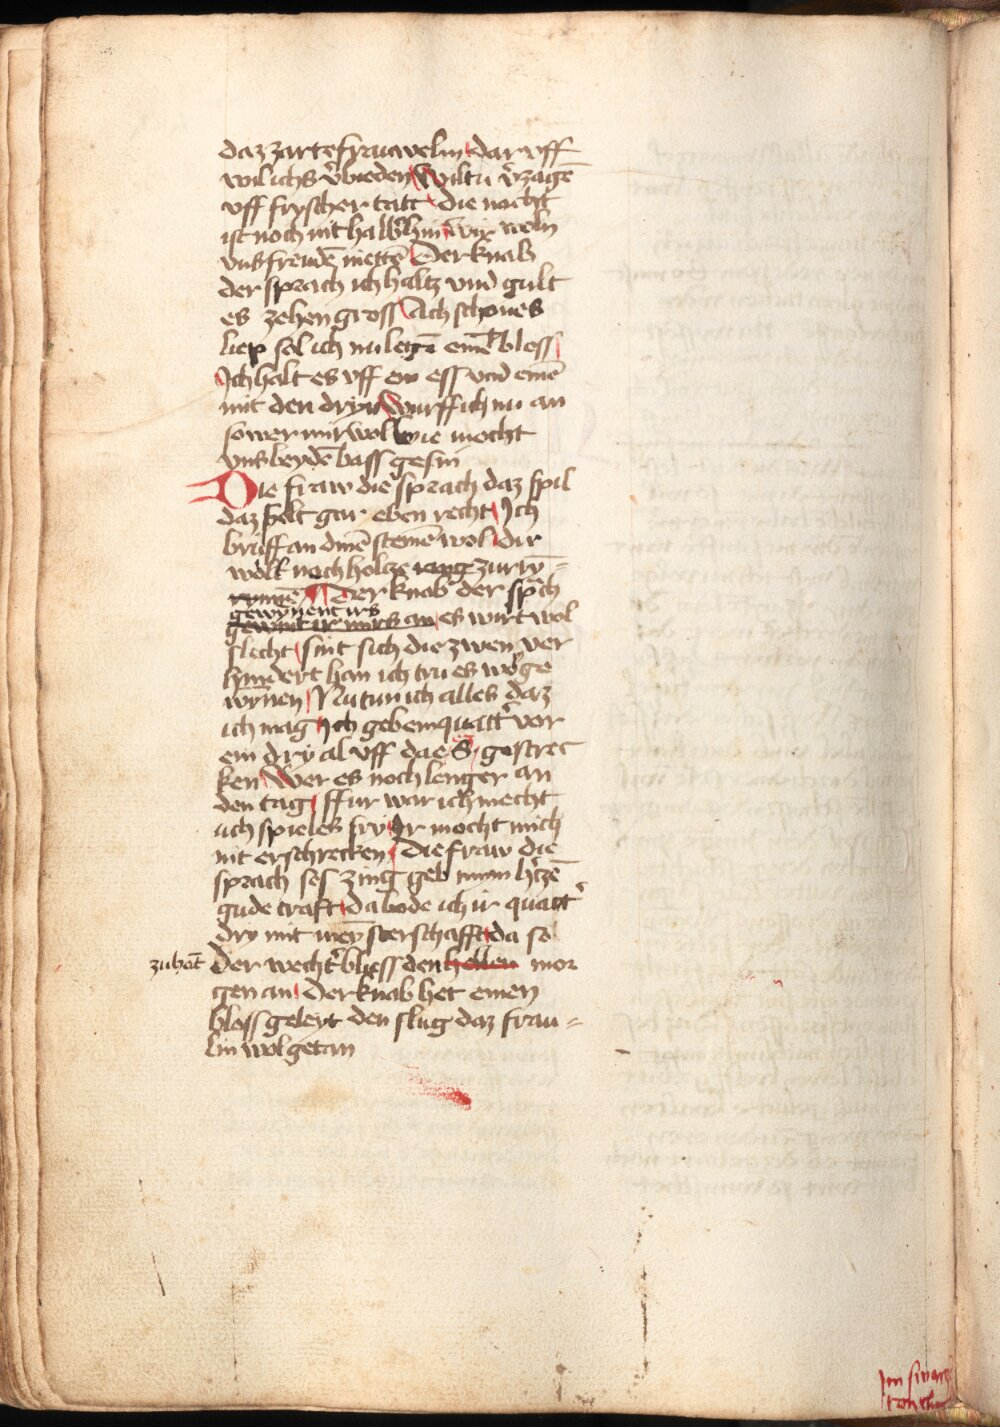 daz zarte frauwelin dar vff
wil ichs v̓bieden Wiltu v̓zagē
vff fryscher tatt die nacht
ist noch nit halb hin wir woln
vns freudē mettē Der knab
der sprach ich haltz vnd gult
es zehen gross Ach schones
liep sol ich nu legē eine bloss
Ich halt es vff ein ess vnd einē
mit den dryn Wurff ich nu an
so wer mir wol wie mocht
vns beydē bass gesin
Die fraw die sprach daz spil
daz felt gar eben recht Ich
bruff an dinē steinē wol dir
wolt nach holtze zurīn=
Der knab der sp̄ch
gewȳnent irs
gewint ir mirs an es wirt wol
slecht sint sich die zwen ver
hindert han ich tru es woͤge
wȳnen Nu tun ich alles daz
ich mag Ich geb ein quatt̓ vor
ein dry al vff daz S gestrec
ken Wer es noch lenger an
den tag ffur war ich mecht
uch spieles fry Ir mocht mich
nit erschrecken die fraw die
sprach ses zing geb minn h̓tzē
gude craft da bode ich ir quatt̓
dry mit meysterschafft da so
zuhāt Der wecht̓ bliess den hellen mor
gen an Der knab het einen
bloss geleyt den slug daz frau=
lin wol getan